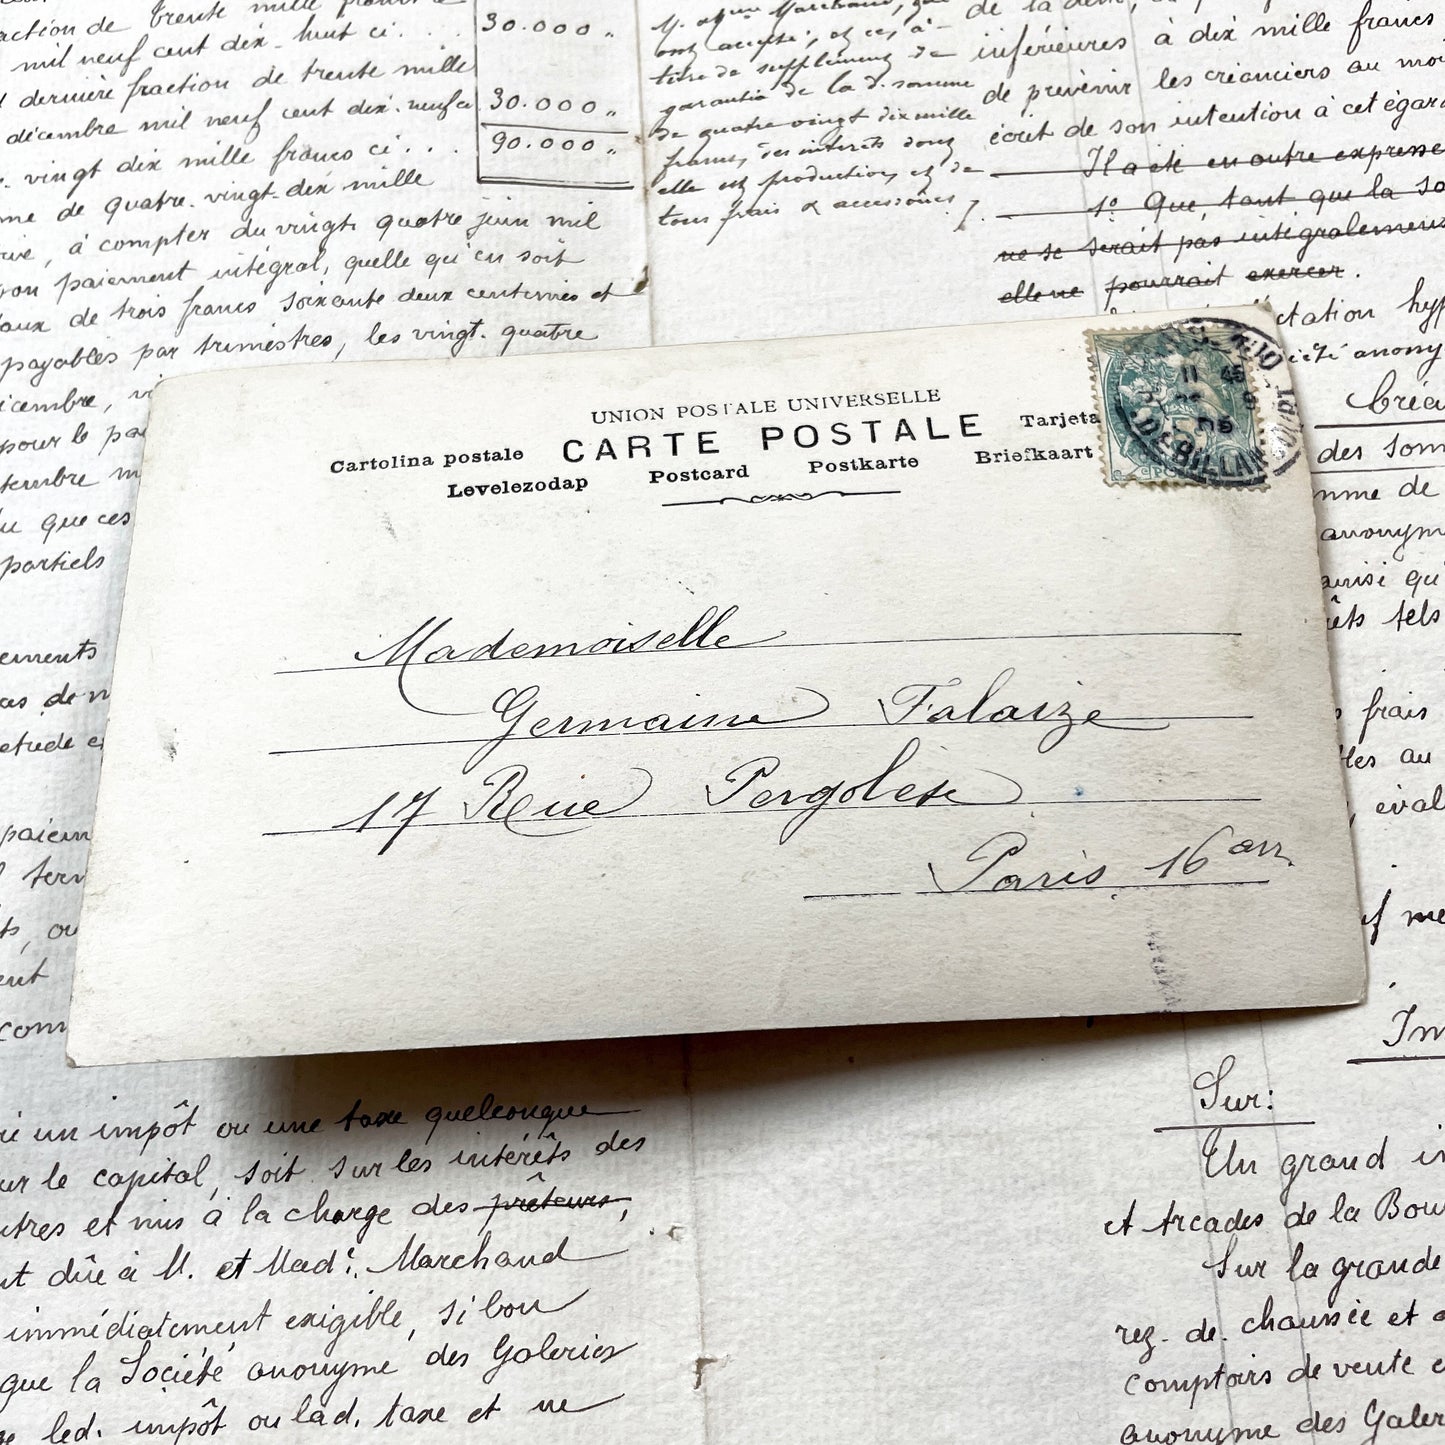 action de trente mille
mil neuf cent dix-huit ci . . .
30.000 „
dernière fraction de trente mille
décembre mil neuf cent dix-neuf ci
30.000 „
vingt dix mille francs ci . . .
90.000 „
me de quatre-vingt-dix mille
à compter du vingt quatre juin mil
paiement intégral, quelle qu'en soit
taux de trois francs soixante deux centimes et
payables par trimestres, les vingt-quatre
cembre,
pour le pa
tembre m
que ces
partiels
ements
as de n
paiem
ter
ts, ou
ent
com
M. et Mme Marchand,
ont accepté, et ce, à
titre de supplément de
garantie de la d. somme
de quatre vingt dix mille
francs, des intérêts dont
elle est productive, et de
tous frais & accessoires
de la dette,
inférieures à dix mille francs
de prévenir les créanciers au moi
écrit de son intention à cet égard
Il a été en outre expresse
1° Que, tant que la so
ne se serait pas intégralement
elle ne pourrait exercer.
ctation hyp
ciété anony
Créa
des som
mme de
anonym
ainsi qu'
êts tels
frais
les au
éval
UNION POSTALE UNIVERSELLE
CARTE POSTALE
Cartolina postale
Tarjeta
Levelezodap Postcard Postkarte Briefkaart
11 45
DEBILLAN
Mademoiselle
Germaine Falaize
17 Rue Pergolèse
Paris 16 arr.
un impôt ou une taxe quelconque
ur le capital, soit sur les intérêts des
utres et mis à la charge des prêteurs,
nt dûe à M. et Mad. Marchand
immédiatement exigible, si bon
que la Société anonyme des Galeries
led. impôt ou lad. taxe et ne
Im
Sur:
Un grand i
et Arcades de la Bou
Sur la grande
rez-de-chaussée et
comptoirs de vente e
anonyme des Galer